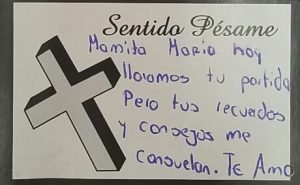 Sentido Pésame
Mamita Maria hoy
lloramos tu partida
Pero tus recuerdos
y consejos me
consuelan. Te Amo